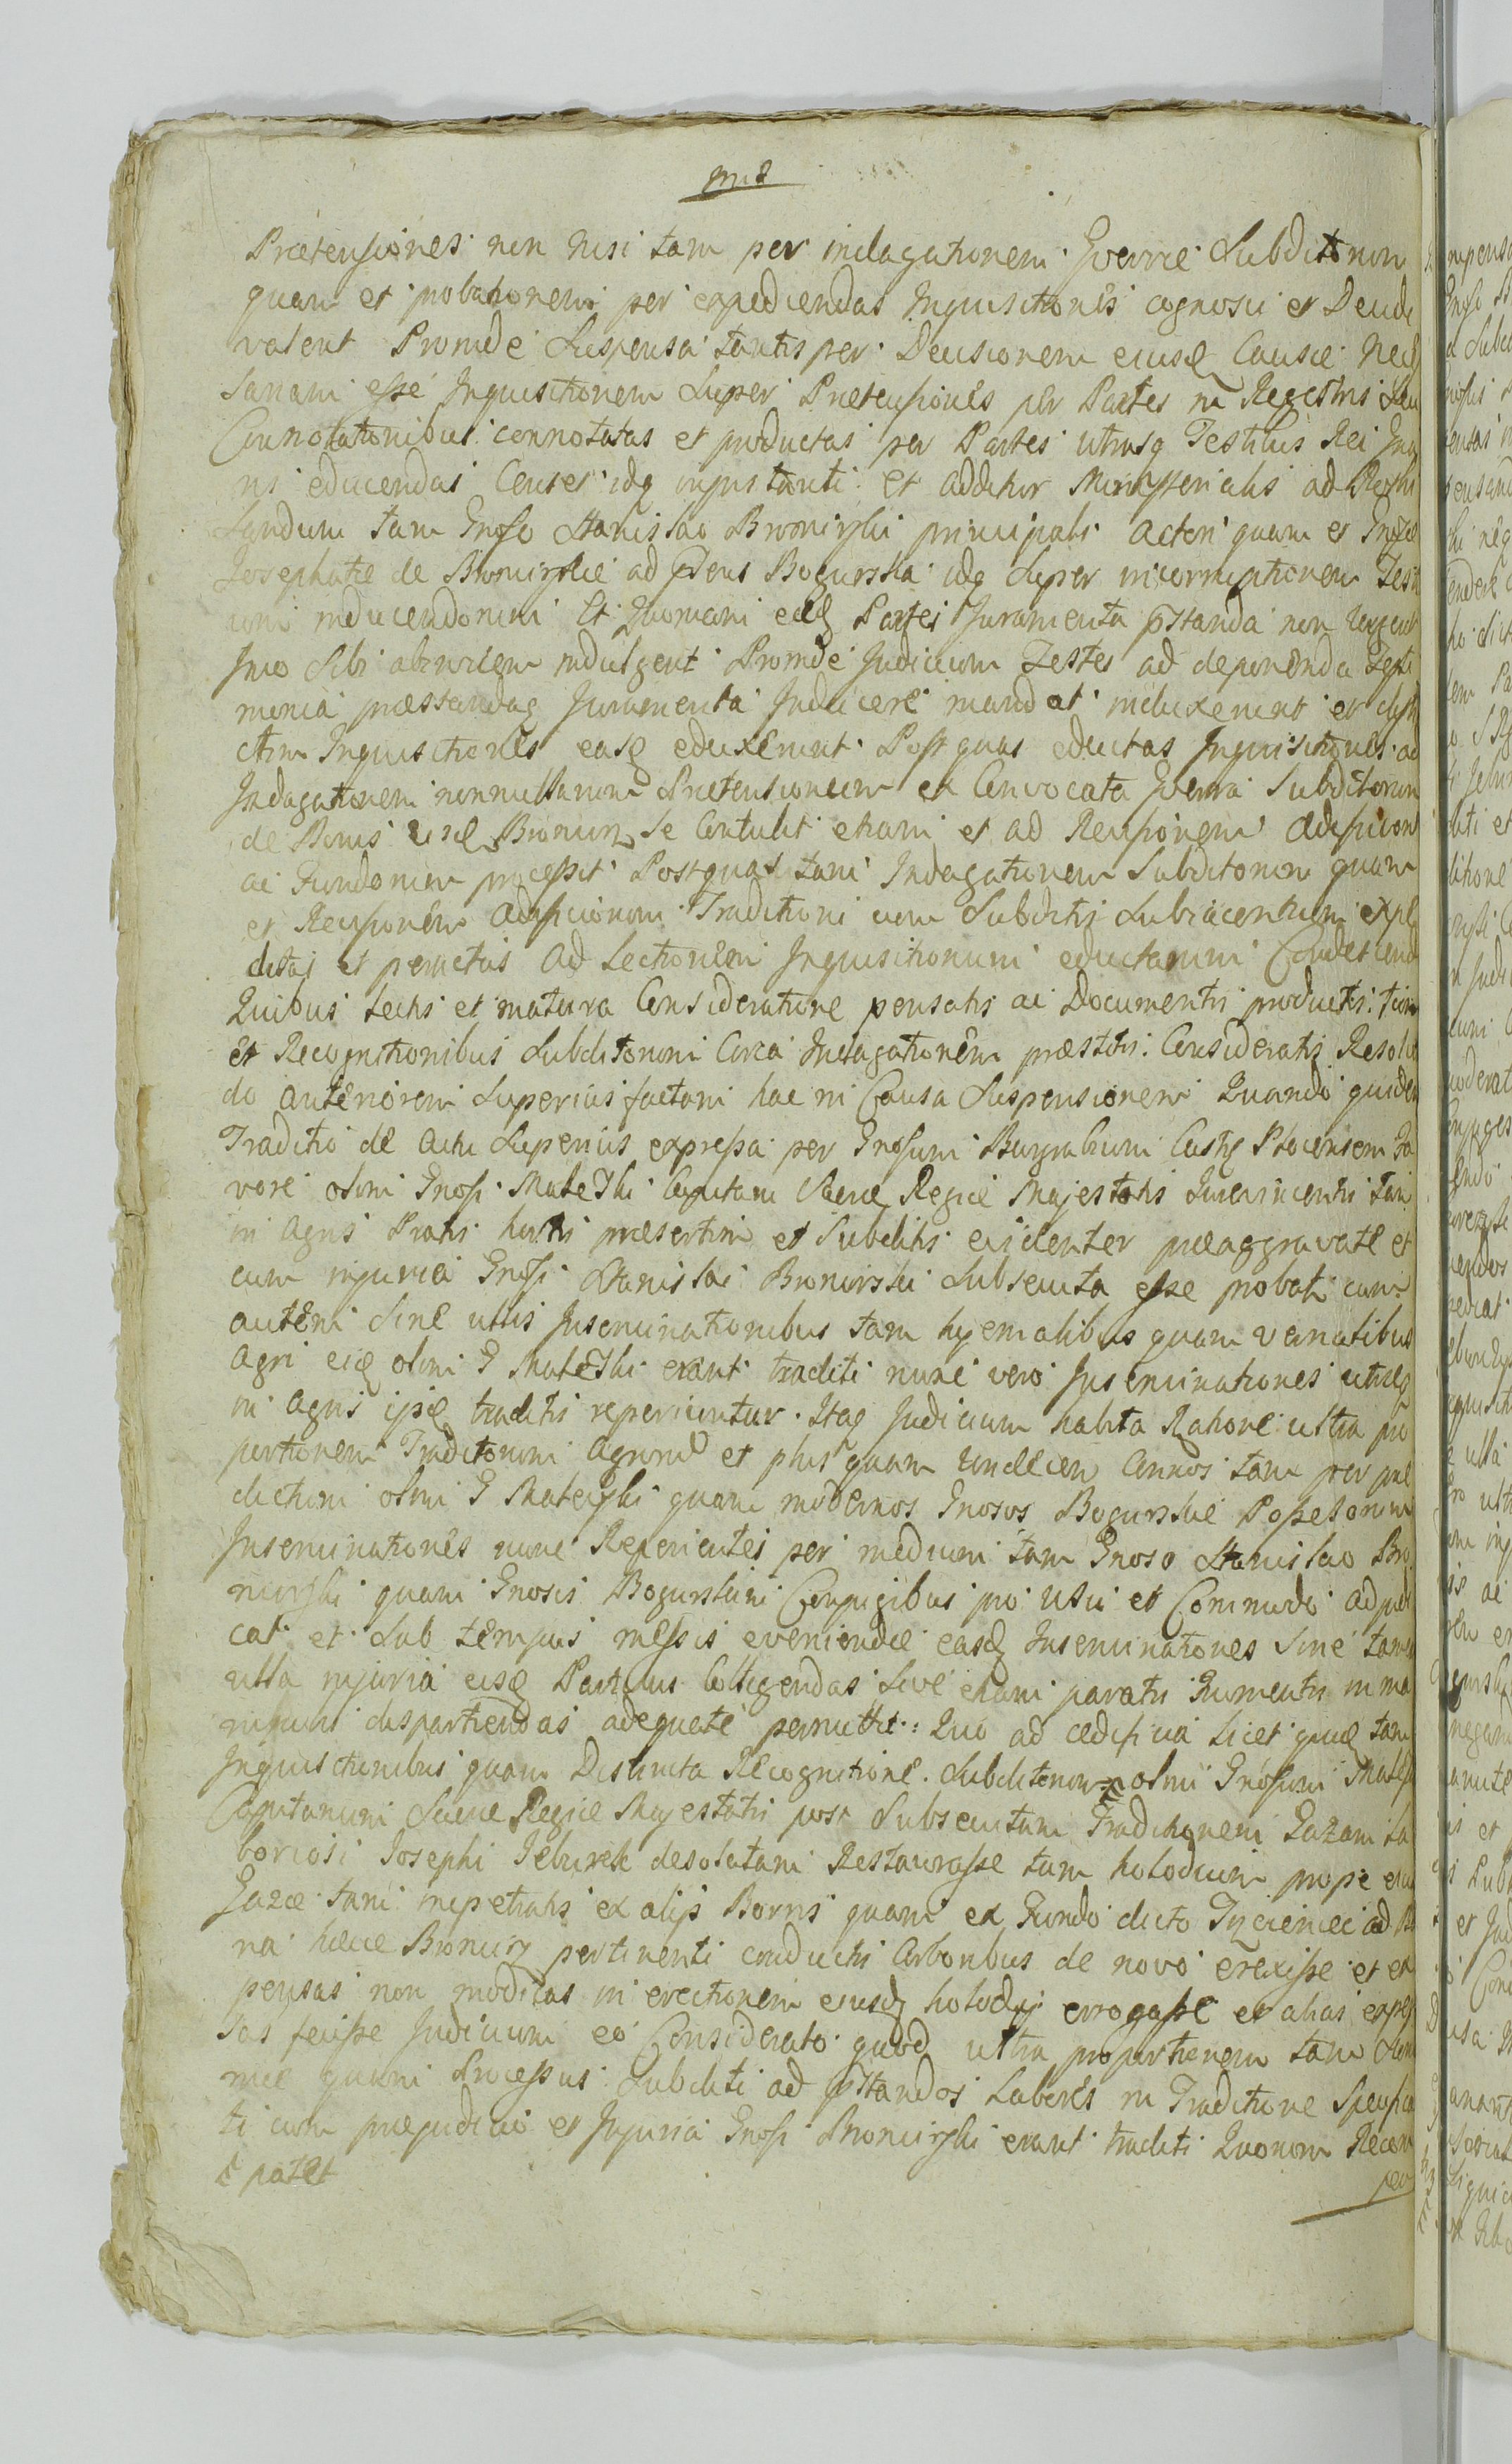 Prætensiones non nisi tam per indagationem Gverræ Subditorum
quam et probationem per expediendas Inquisitiones cognosci et Decidi
valent Proinde Suspensa tantisper Decisionem eiusd Causæ Neces
sariam esse Inquisitionem Super Prætensiones per Partes in Regestris Seu
Connotationibus connotatas et productas per Partes utrasq Testibus Rei
ris educendas Censet idq injustanti et additur Ministerialis ad
landum tam Gnoso Stanislao Bromirski principali Actori quam et Gnosæ
Josephatæ de Bromirskie ad Pdens Bogurska idq Super incorruptionem Test
ium inducendorum Et Quoniam eæd Partes Juramenta pstanda non urgent
Imo Sibi abinvicem indulgent Proinde Judicium Testes ad deponenda Testi
monia præstandaq Juramenta Inducere mandat induxerunt et
ctim Inquisitiones easd eduxerunt Post quas eductas Inquisitiones ad
Indagationem nonnullarum Prætensionum ex Convocata Gverra Subditorum
de Bonis Bromirz Se Contulit etiam et ad Revisionem Ædificiorum
ac Fundorum processit Postquas tam Indagationem Subditorum quam
et Revisionem Ædificiorum Traditioni cum Subditis Subiacentium expe
ditas et peractas Ad Lectionem Inquisitionum eductarum Condescend
Quibus Lectis et matura Consideratione pensatis ac Documentis productis tum
et Recognitionibus Subditorum Circa Indagationem præstitis Consideratis Resol
do anteriorem Superius factam hac in Causa Suspensionem Quando quidem
Traditio de Actu Superius expressa per Gnosum Burgrabium Castr Plocensem Fa
vore olim Gnosi Mateski Capitanei Sacræ Regiæ Majestatis tam
in Agris Pratis hortis præsertim et Subditis evidenter præaggravate et
cum injuria Gnosi Stanislai Bromirski Subsecuta esse probatur cum
autem Sine ullis Inseminationibus tam hyemalibus quam vernalibus
Agri eid olim G Mateski erant traditi nunc vero Inseminationes
in Agris ipsis traditis reperiuntur Itaq Judicium habita Ratione ultra pro
portionem Traditorum Agrorum et plus quam undecim Annos tam per præ
dictum olim G Mateyski quam modernos Gnosos Bogurskie Possessorum
Inseminationes nunc Reperientes per medium tam Gnoso Stanislao Bro
mirski quam Gnosis Bogurskim Conjugibus pro Usu et Commodo adjudi
cat et Sub tempus messis eveniendæ easd Inseminationes Sine tamen
ulla injuria eisd Partibus Colligendas Sive etiam paratis frumentis in ma
nipulis dispartiendas adequate permittit Quo ad ædificia licet quæ tam
Inquisitionibus quam Distincta Recognitione Subditorum olim Gnosum
Capitaneum Sacræ Regiæ Majestatis post Subsecutam Traditionem Gazam la
boriosi Josephi desolatam Restaurasse tum hołodium prope
Gazæ tam impetratis ex alijs Bonis quam ex Fundo dicto ad Bo
na hæce Bromirz pertinenti conductis Arboribus de novo erexisse et ex
pensas non modicas in erectionem ejusdq erogasse et alias expen
sas fecisse Judicium eo Considerato quod ultra proportionem tam
quam Processus Subditi ad pstandos Labores in Traditione Specifica
ti cum præjudicio et Injuria Gnosi Bromirski erant traditi Quorum
patet
per